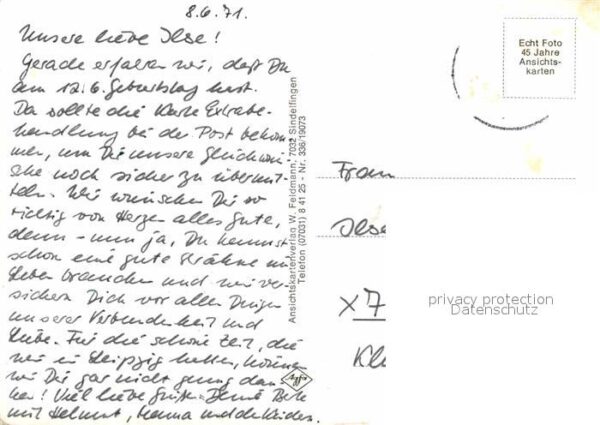 8.6.71.
Unsere liebe Ilse!
Gerade erfahren wir, daß Du
am 12.6. Geburtstag hast.
Da sollte die Karte Extrabe-
handlung bei der Post bekom-
men, um Dir unsere Glückwün-
sche noch sicher zu übermit-
teln. Wir wünschen Dir so
richtig von Herzen alles Gute,
denn - nun ja, Du kannst
schon eine gute Strähne mit
Leben brauchen und wir ver-
sichern Dich vor allen Dingen
unserer Verbundenheit und
Liebe. Für die schöne Zeit, die
wir in Leipzig hatten, können
wir Dir gar nicht genug dan-
ken! Viel liebe Grüße
mit Helmut, und den Kindern.
Ansichtskartenverlag W. Feldmann, 7032 Sindelfingen
Telefon (07031) 8 41 25 - Nr. 336/19073
Agfa
Echt Foto
45 Jahre
Ansichts-
karten
Frau
Ilse
X7
Kl
privacy protection
Datenschutz